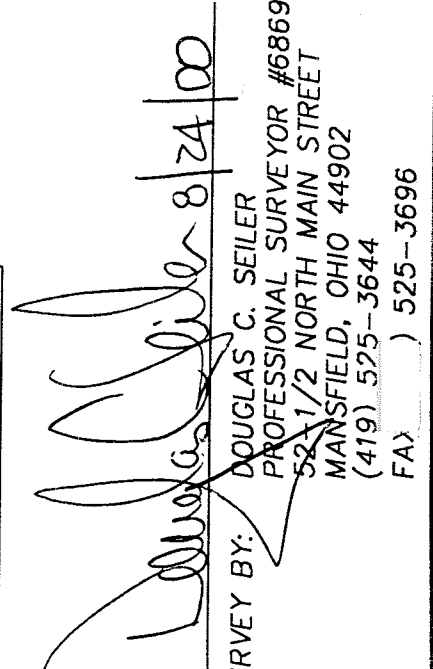 Douglas C. Seiler 8/24/00
RVEY BY: DOUGLAS C. SEILER
PROFESSIONAL SURVEYOR #6869
52-1/2 NORTH MAIN STREET
MANSFIELD, OHIO 44902
(419) 525-3644
FAX ) 525-3696